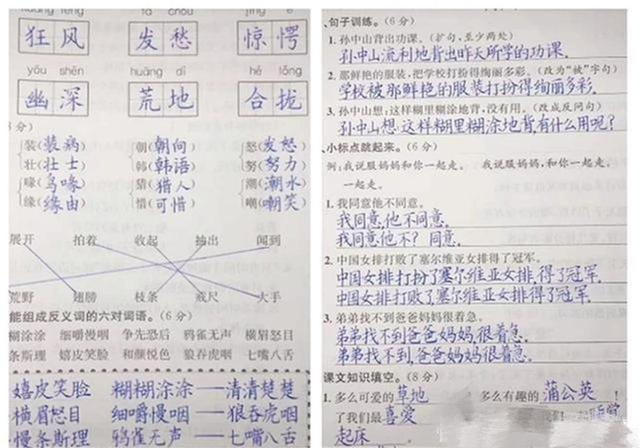 kuáng fēng fā chóu jīng è
狂风 发愁 惊愕
yōu shēn huāng dì hé lǒng
幽深 荒地 合拢
分)
装(装病) 朝(朝向) 怒(发怒)
壮(壮士) 韩(韩语) 努(努力)
喙(鸟喙) 猎(猎人) 潮(潮水)
缘(缘由) 惜(可惜) 嘲(嘲笑)
展开 拍着 收起 抽出 闻到
荒野 翅膀 枝条 戒尺 大手
能组成反义词的六对词语。(6分)
糊涂涂 细嚼慢咽 争先恐后 鸦雀无声 横眉怒目
条斯理 嬉皮笑脸 和颜悦色 狼吞虎咽 七嘴八舌
嬉皮笑脸 糊糊涂涂——清清楚楚
横眉怒目 细嚼慢咽——狼吞虎咽
慢条斯理 鸦雀无声——七嘴八舌
、句子训练。(6分)
1. 孙中山背出功课。(扩句,至少两处)
孙中山流利地背出昨天所学的功课.
2. 那鲜艳的服装,把学校打扮得绚丽多彩。(改为“被”字句)
学校被那鲜艳的服装打扮得绚丽多彩.
3. 孙中山想:这样糊里糊涂地背,没有用。(改成反问句)
孙中山想:这样糊里糊涂地背有什么用呢?
小标点跳起来。(6分)
例:我说服妈妈和你一起走。 我说服妈妈,和你一起走。
一起走。
1. 我同意他不同意。
我同意,他不同意.
我同意他不?同意.
2. 中国女排打败了塞尔维亚女排得了冠军。
中国女排打扮了塞尔维亚女排,得了冠军.
中国女排打败了,塞尔维亚女排得了冠军.
3. 弟弟找不到爸爸妈妈很着急。
弟弟找不到爸爸妈妈,很着急.
弟弟找不到,爸爸妈妈很着急.
课文知识填空。(8分)
1. 多么可爱的草地 多么有趣的蒲公英!
了我们最喜爱
起床